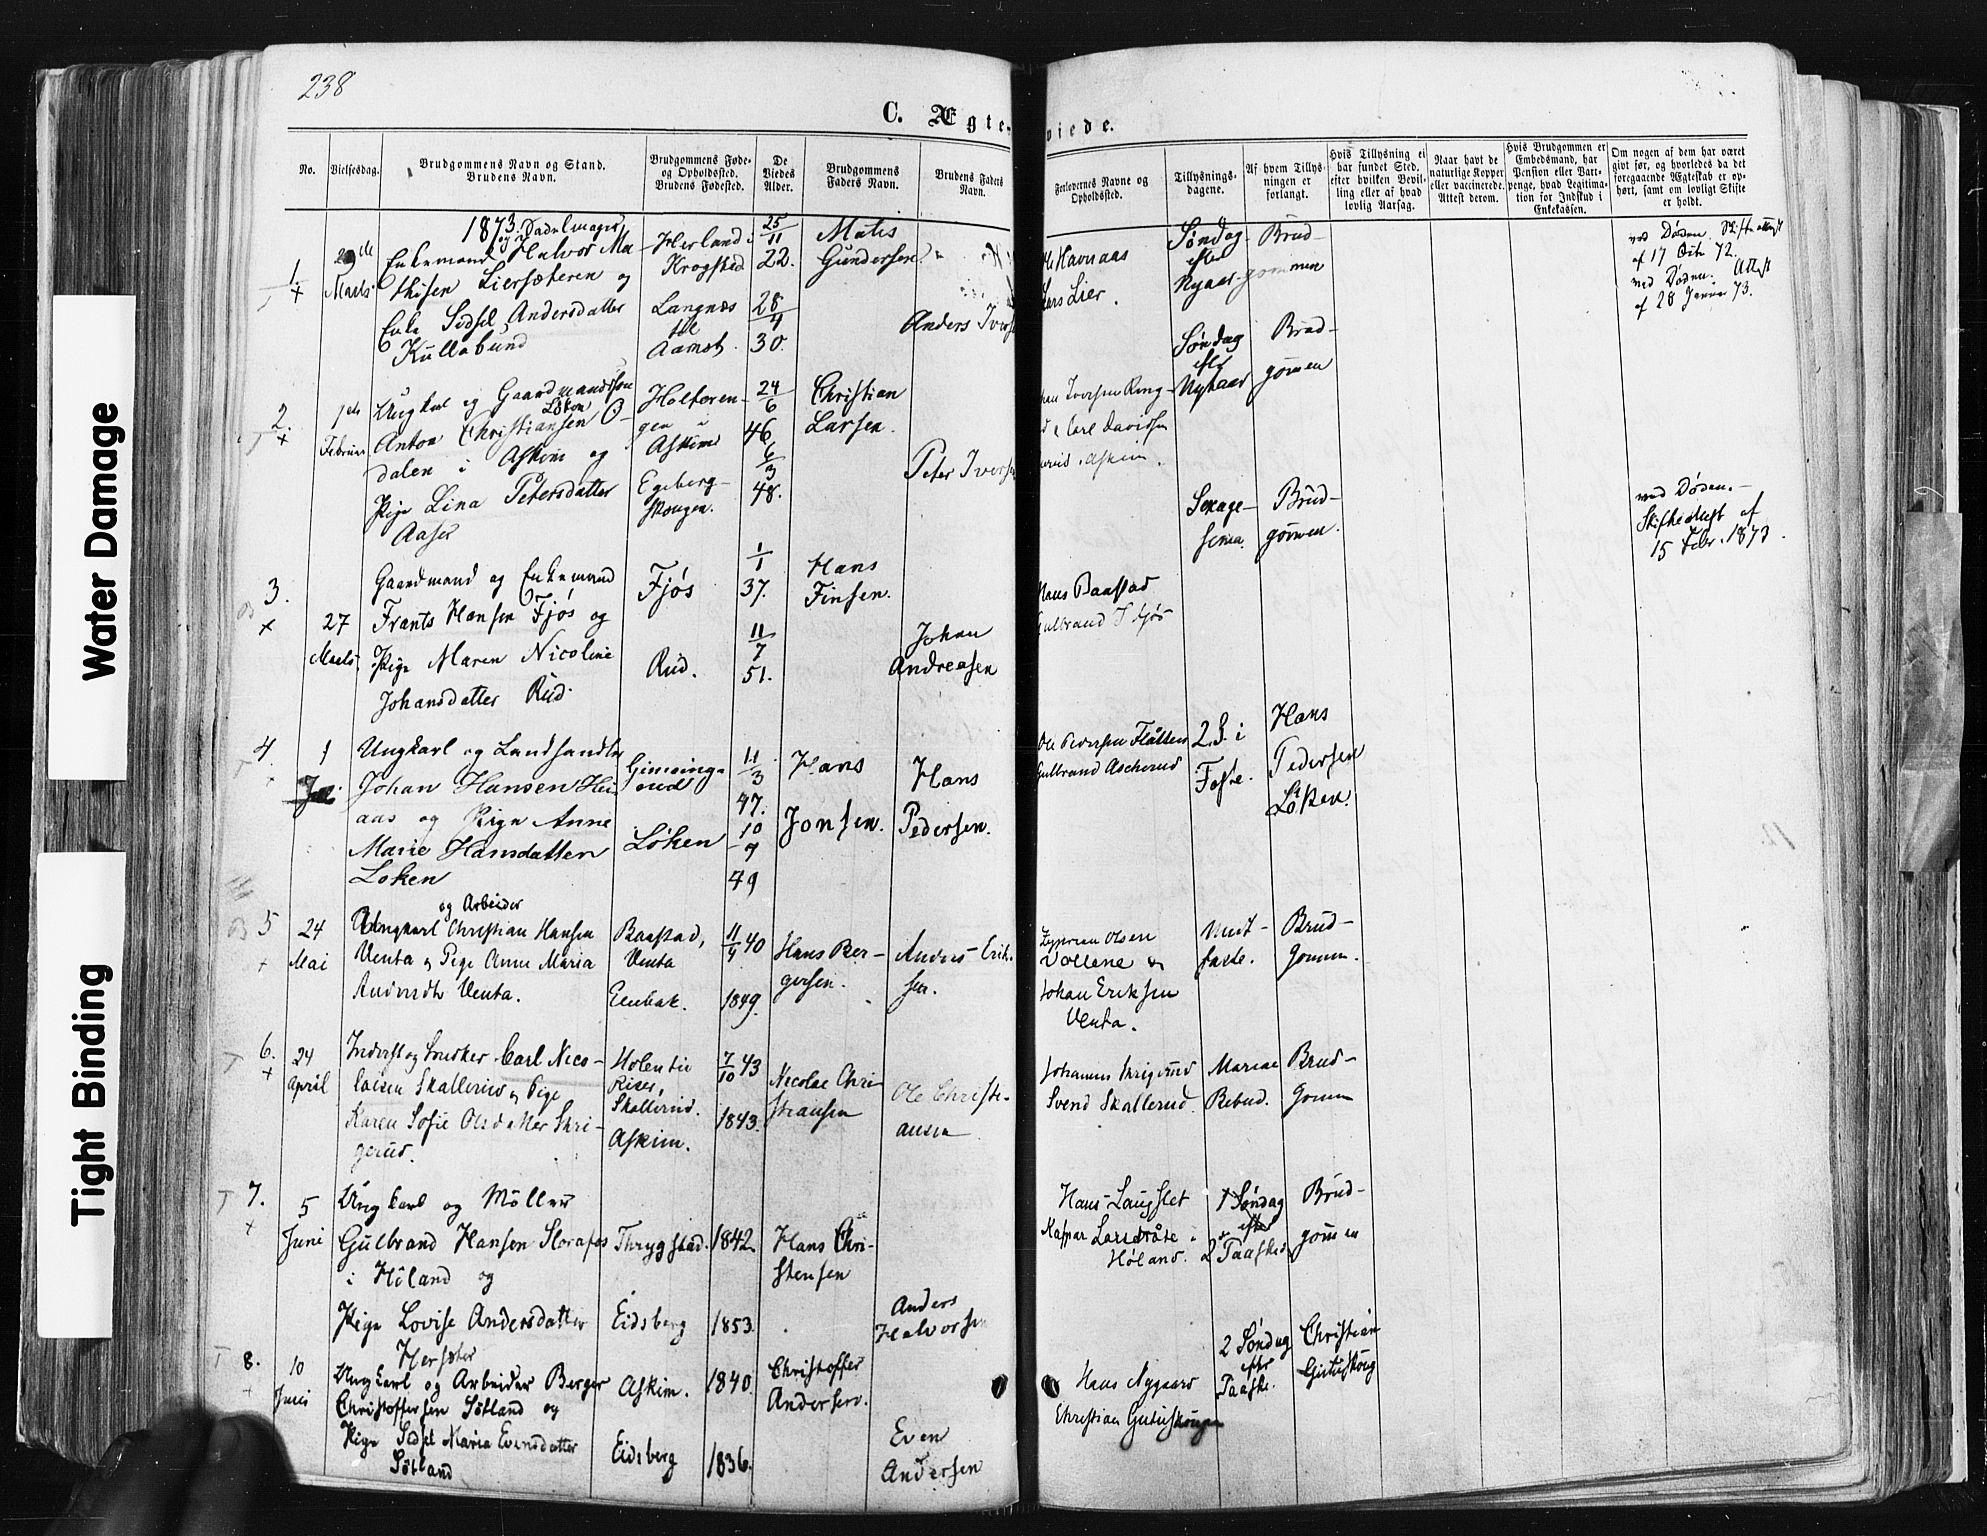 Water Damage
Tight Binding
238
C. Ægte-
viede.
No.
Vielsesdag.
Brudgommens Navn og Stand.
Brudens Navn.
Brudgommens Føde-
og Opholdssted.
Brudens Fødested.
De
Viedes
Alder.
Brudgommens
Faders Navn.
Brudens Faders
Navn.
Forlovernes Navne og
Opholdssted.
Tillysnings-
dagene.
Af hvem Tillys-
ningen er
forlangt.
Hvis Tillysning ei
har fundet Sted,
efter hvilken Bevil-
ling eller af hvad
lovlig Aarsag.
Naar havt de
naturlige Kopper
eller vaccinerede.
Attest derom.
Hvis Brudgommen er
Embedsmand, har
Pension eller Vart-
penge, hvad Legitima-
tion for Indskud i
Enkekassen.
Om nogen af dem har været
givt før, og hvorledes da det
foregaaende Ægteskab er op-
hørt, samt om lovligt Skifte
er holdt.
1873.
1.
Marts
Enkemand og Halvor Ma-
thisen Liersæteren og
Enke Sidsel Andersdatter
Kullebund
Herland i
Krogstad
Langnæs
Aamot.
25/11
22.
28/4
30.
Matis
Gundersen
Anders Ivers
Ole Havnaas
Lars Lier.
Søndag
efter
Nyaar
Brud-
gommen
ved Døden. Skifteattest
af 17 Octb 72.
ved Døden. Attest
af 28 Januar 73.
2.
1ste
Februar
Ungkarl og Gaardmandssøn
Løken
Anton Christiansen O-
dalen i Askim og
Pige Lina Petersdatter
Aaser
Holteren-
gen i
Askim
Egeberg-
skougen.
24/6
46
6/3
48.
Christian
Larsen.
Peter Iversen
Iversen Ring-
Carl Davidsen
Askim.
Søndag
efter
Nytaar
Brud-
gommen
3.
27
Marts.
Gaardmand og Enkemand
Frants Hansen Fjøs og
Pige Maren Nicoline
Johansdatter Rud.
Fjøs
Rud.
1/1
37.
11/7
51.
Hans
Finsen.
Johan
Andreasen
Hans Baastad
Gulbrand Fjøs
Sexage-
sima.
Brud-
gommen.
ved Døden.-
Skifteattest af
15 Febr. 1873.
4.
1
Ungkarl og Landhandler
Johan Hansen Hei
aas og Pige Anne
Marie Hansdatter
Løken
Gimsing-
rud
Løken
11/3
47.
10/9
49
Hans
Jonsen.
Hans
Pedersen.
Ole Pedersen Flaaten
Gulbrand Ascherud
2. S. i
Faste.
Hans
Pedersen
Løken.
5
24
Mai
og Arbeider
Ungkarl Christian Hansen
Venta og Pige Anne Maria
Andersdtr Venta.
Baastad,
Venta
Enebak.
11/4 40
1849.
Hans Ber-
gersen.
Anders Erik-
sen.
Zyprian Olsen
Vollene &
Johan Eriksen
Venta.
Midt-
faste.
Brud-
gommen.
6.
24
April
Inderst og Snedker Carl Nico-
laisen Skallerud og Pige
Karen Sofie Olsdatter Skri-
gerud.
Skallerud.
Askim.
7/10 43
1843.
Nicolai Chri-
stiansen
Ole Christi-
ansen
Johannes Skrigerud
Svend Skallerud.
Mariae
Bebud.
Brud-
gommen
7.
5
Juni
Ungkarl og Møller
Gulbrand Hansen Storafos
i Høland og
Pige Lovise Andersdatter
Hersæter
Thrygstad.
Eidsberg
1842.
1853.
Hans Chri-
stensen
Anders
Halvorsen
Hans Laugslet
Høland.
1 Søndag
efter
2 Paaske
Brud-
gommen
8.
10
Juni
Ungkarl og Arbeider Berger
Christoffersen Søtland og
Pige Sidsel Maria Evensdatter
Søtland
Askim.
Eidsberg
1840.
1836.
Christoffer
Andersen.
Even
Andersen
Hans Nygaard
Christian Gutuskougen
2 Søndag
efter
Paaske.
Christian
Gutuskoug